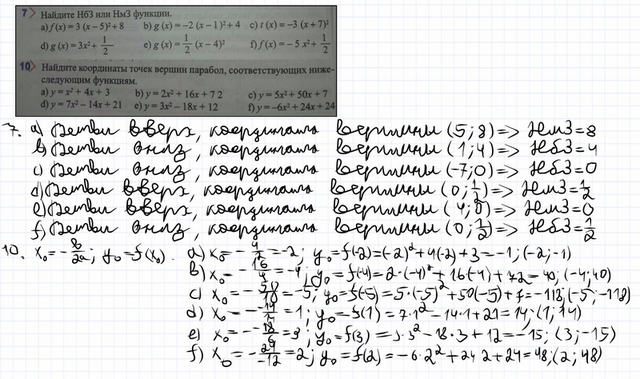 7 Найдите НбЗ или НмЗ функции.
a) f(x) = 3 (x – 5)² + 8 b) g (x) = –2 (x – 1)² + 4 c) t (x) = –3 (x + 7)²
d) g (x) = 3x² + 1/2 e) g (x) = 1/2 (x – 4)² f) f(x) = – 5 x² + 1/2
10 Найдите координаты точек вершин парабол, соответствующих ниже-
следующим функциям.
a) y = x² + 4x + 3 b) y = 2x² + 16x + 7 2 c) y = 5x² + 50x + 7
d) y = 7x² – 14x + 21 e) y = 3x² – 18x + 12 f) y = –6x² + 24x + 24
7. a) Ветви вверх, координаты вершины (5; 8) => НмЗ = 8
b) Ветви вниз, координаты вершины (1; 4) => НбЗ = 4
c) Ветви вниз, координаты вершины (-7; 0) => НбЗ = 0
d) Ветви вверх, координаты вершины (0; 1/2) => НмЗ = 1/2
e) Ветви вверх, координаты вершины (4; 0) => НмЗ = 0
f) Ветви вниз, координаты вершины (0; 1/2) => НбЗ = 1/2
10. x₀ = -b/2a; y₀ = f(x₀). a) x₀ = -4/2 = -2; y₀ = f(-2) = (-2)² + 4(-2) + 3 = -1; (-2; -1)
b) x₀ = -16/4 = -4; y₀ = f(-4) = 2·(-4)² + 16(-4) + 72 = 40; (-4; 40)
c) x₀ = -50/10 = -5; y₀ = f(-5) = 5·(-5)² + 50(-5) + 7 = -118; (-5; -118)
d) x₀ = -14/14 = 1; y₀ = f(1) = 7·1² - 14·1 + 21 = 14; (1; 14)
e) x₀ = -18/6 = 3; y₀ = f(3) = 3·3² - 18·3 + 12 = -15; (3; -15)
f) x₀ = -24/-12 = 2; y₀ = f(2) = -6·2² + 24·2 + 24 = 48; (2; 48)